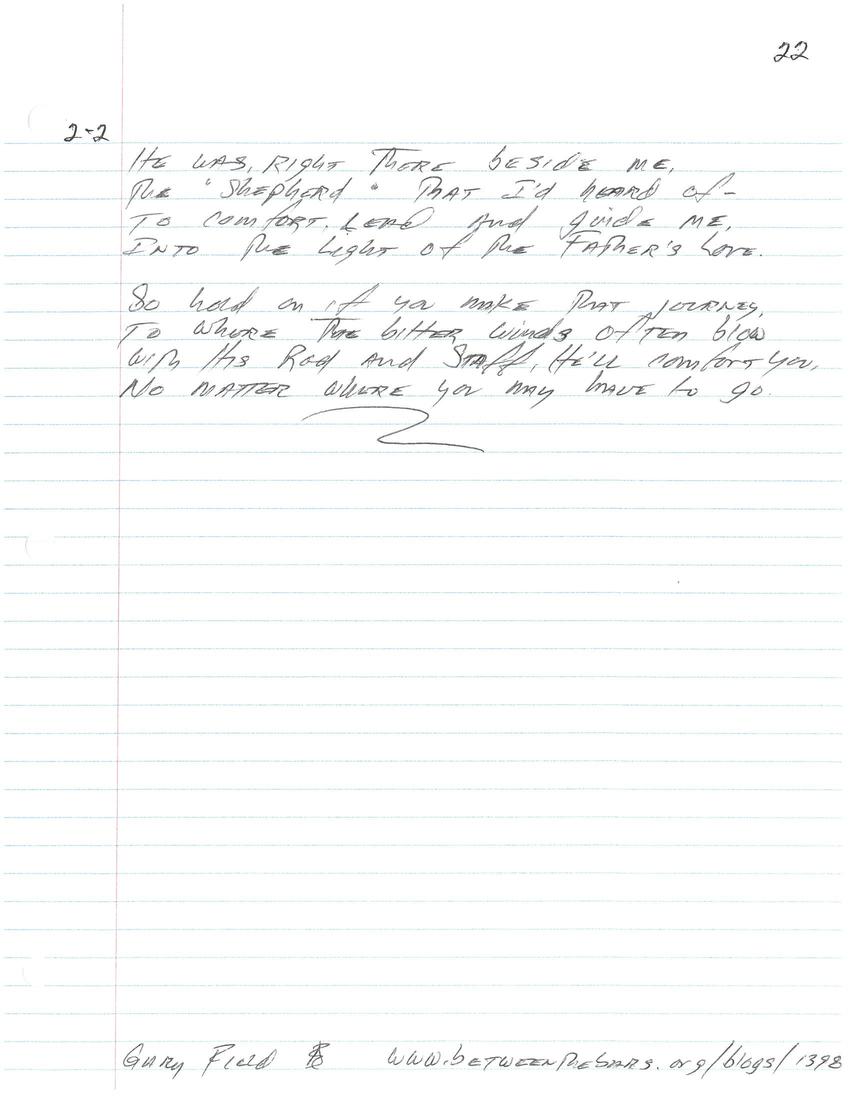 22
2-2
He was, right there beside me,
The "Shepherd" that I'd heard of-
To comfort, lead and guide me,
Into the light of the Father's Love.
So hold on if you make that journey,
To where the bitter winds often blow
With His Rod and Staff, He'll comfort you,
No matter where you may have to go.
Gary Field www.betweenthebars.org/blogs/1398